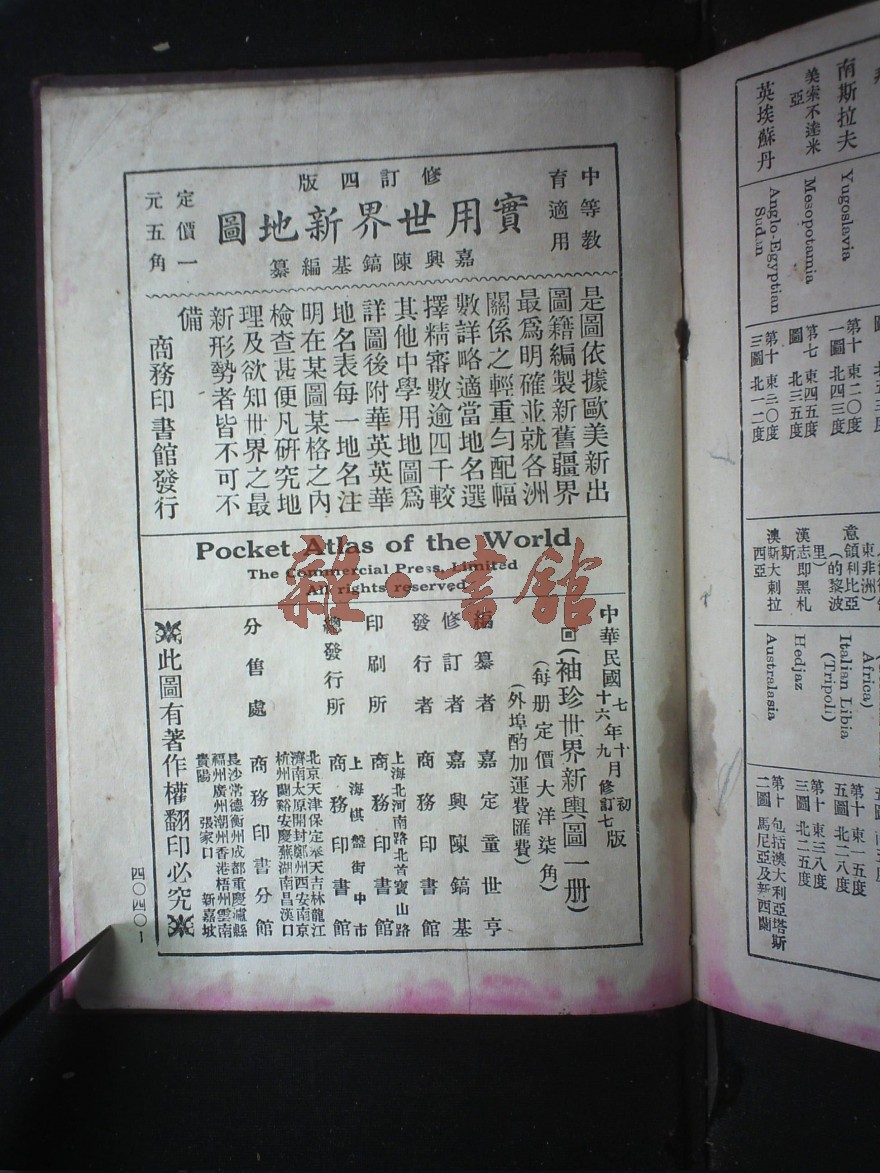 中等教育適用
修訂四版
實用世界新地圖
嘉興陳鎬基編纂
定價一元五角
是圖依據歐美新出
圖籍編製新舊疆界
最爲明確並就各洲
關係之輕重勻配幅
數詳略適當地名選
擇精審數逾四千較
其他中學用地圖爲
詳圖後附華英英華
地名表每一地名注
明在某圖某格之內
檢查甚便凡研究地
理及欲知世界之最
新形勢者皆不可不
備
商務印書館發行
Pocket Atlas of the World
The Commercial Press, Limited
All rights reserved
中華民國七年十月初版
十六年九月修訂七版
(袖珍世界新輿圖一册)
(每册定價大洋柒角)
(外埠酌加運費匯費)
編纂者 嘉定童世亨
修訂者 嘉興陳鎬基
發行者 商務印書館
印刷所 上海北河南路北首寶山路 商務印書館
總發行所 上海棋盤街中市 商務印書館
分售處 商務印書分館
北京天津保定奉天吉林龍江
濟南太原開封鄭州西安南京
杭州蘭谿安慶蕪湖南昌漢口
長沙常德衡州成都重慶瀘縣
福州廣州潮州香港梧州雲南
貴陽 張家口 新嘉坡
此圖有著作權翻印必究
四〇四〇1
雜·書館
南斯拉夫
Yugoslavia
第十一圖 東二〇度 北四三度
美索不達米亞
Mesopotamia
第七圖 東四五度 北三五度
英埃蘇丹
Anglo-Egyptian Sudan
第十三圖 東三〇度 北一二度
東非洲)
Africa)
意領利比亞(的黎波里)
Italian Libia (Tripoli)
第十五圖 東一五度 北二八度
漢志即黑札斯
Hedjaz
第十三圖 東三八度 北二五度
澳斯大剌拉西亞
Australasia
第十二圖 包括澳大利亞塔斯馬尼亞及新西蘭